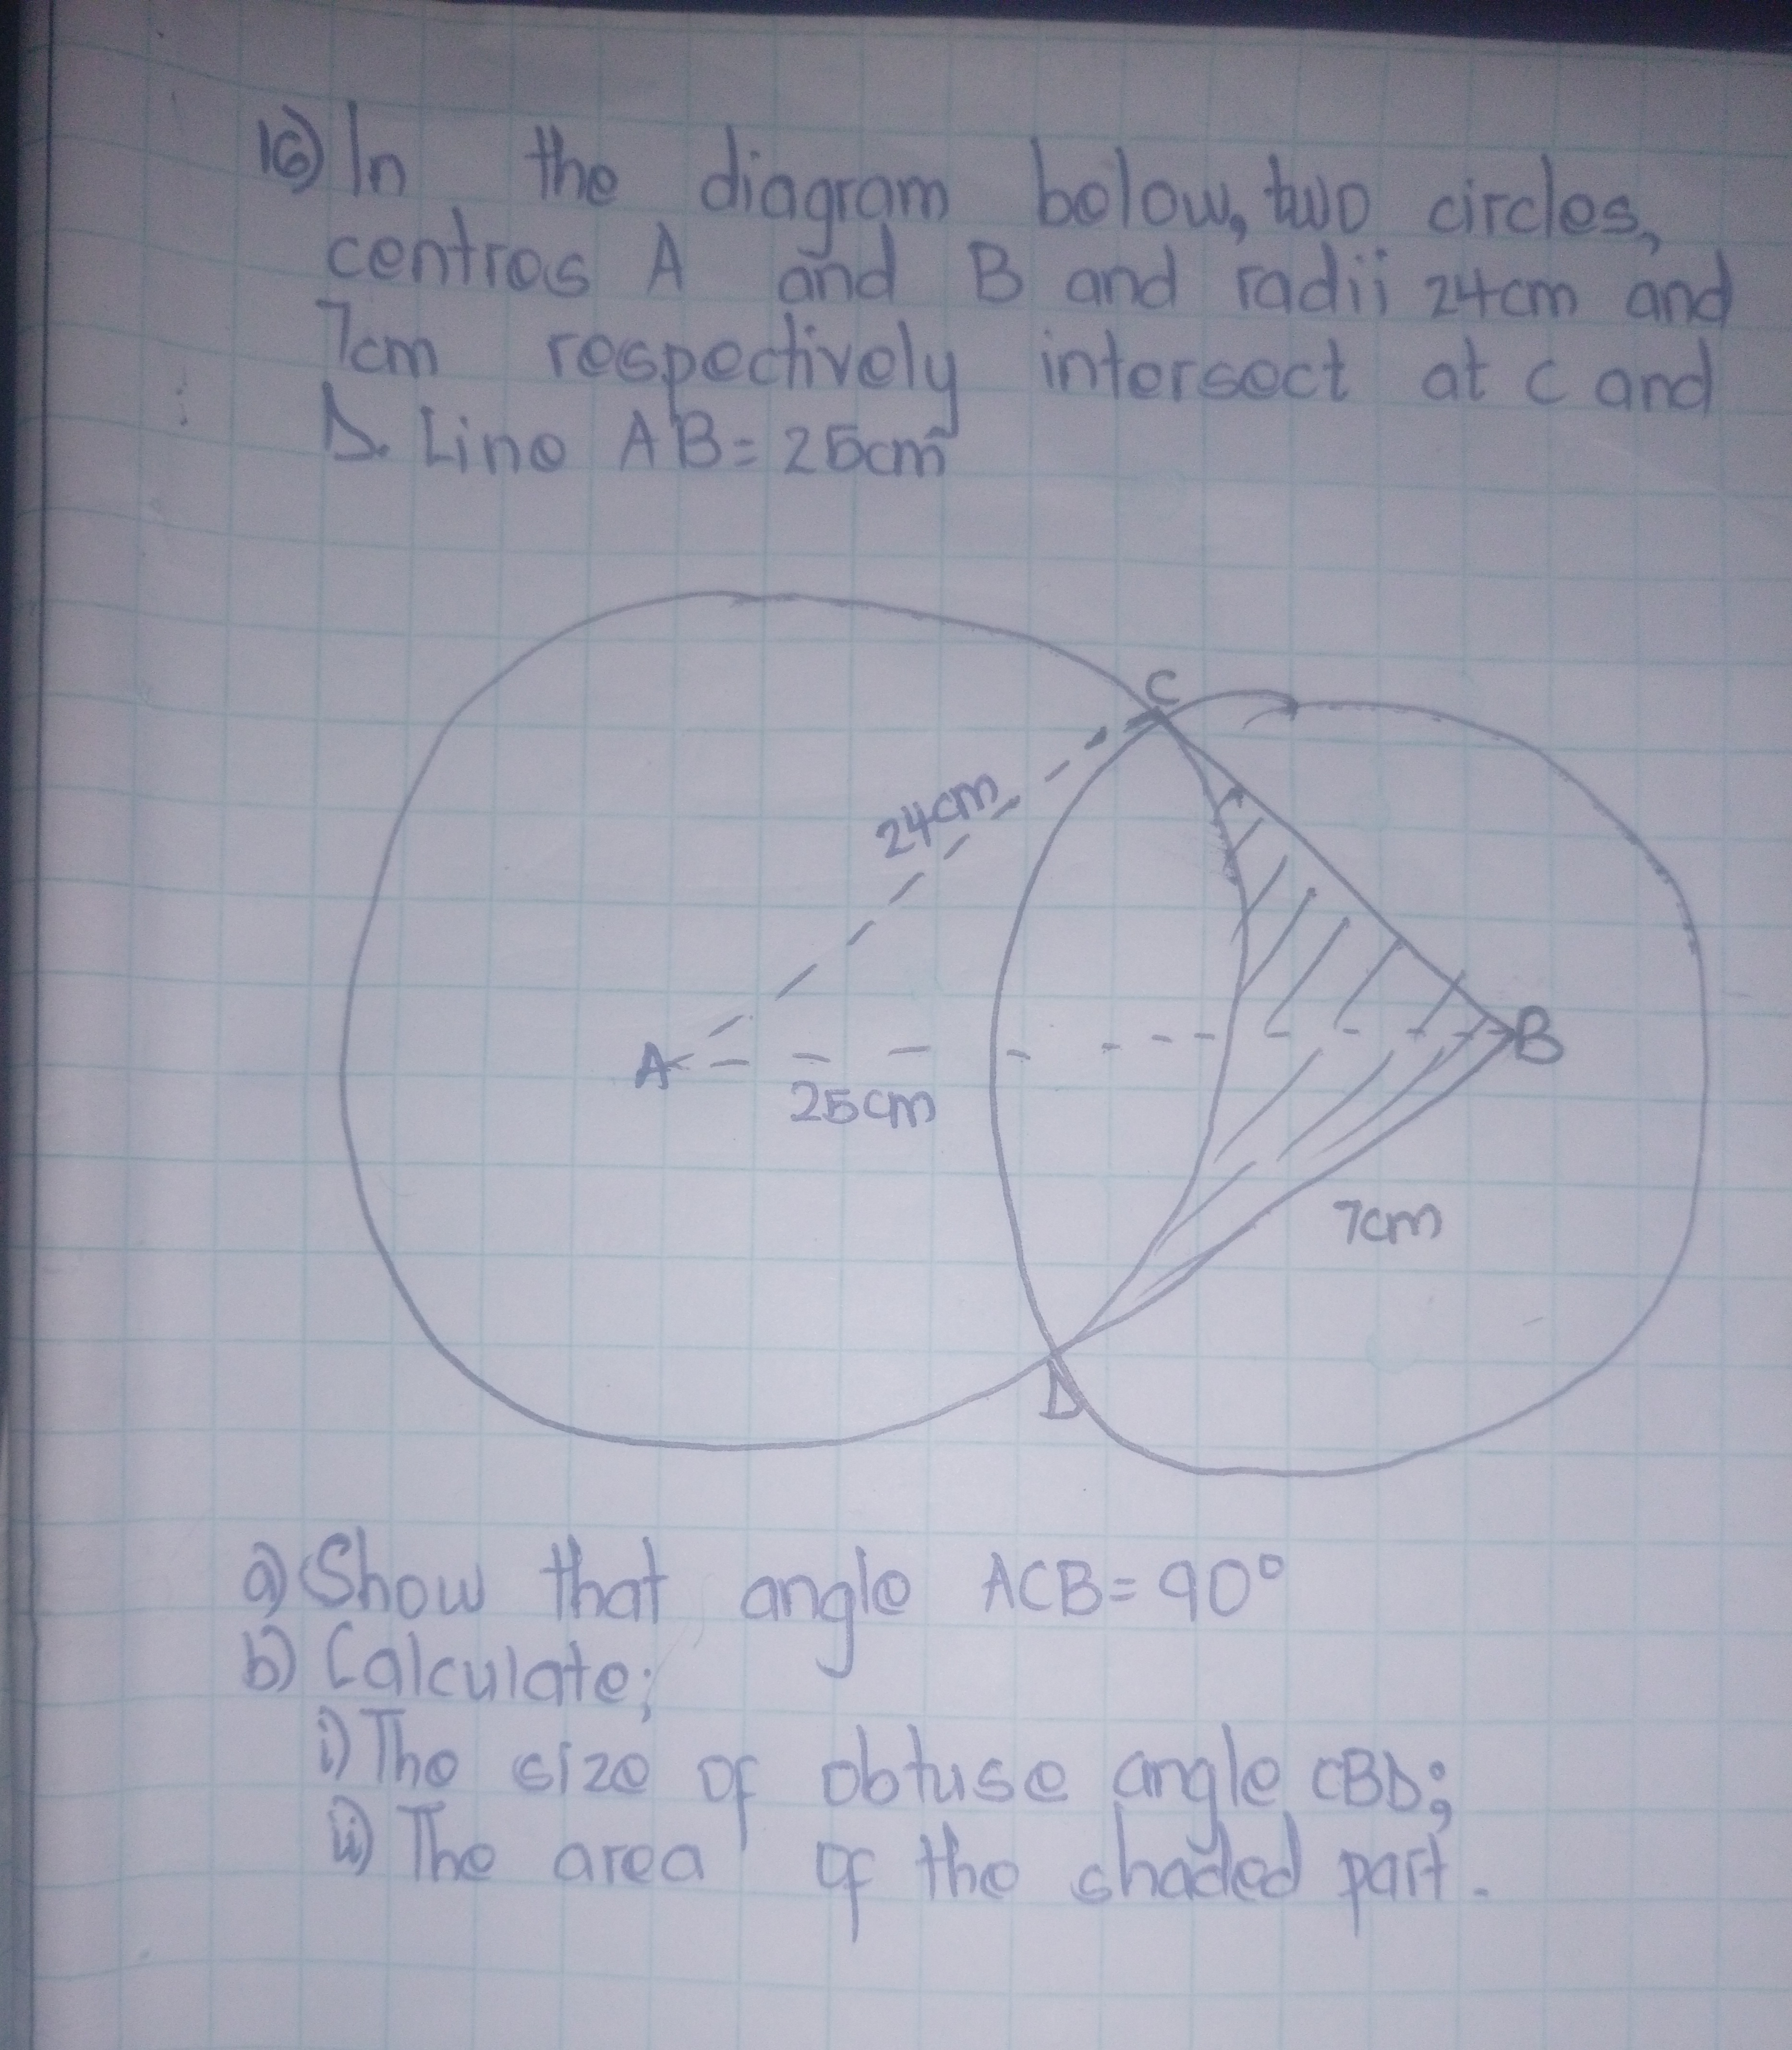 16) In the diagram below, two circles,
centres A and B and radii 24cm and
7cm respectively intersect at C and
D. Line AB = 25cm
C
24cm
A
B
25cm
7cm
D
a) Show that angle ACB = 90°
b) Calculate;
i) The size of obtuse angle CBD;
ii) The area of the shaded part.